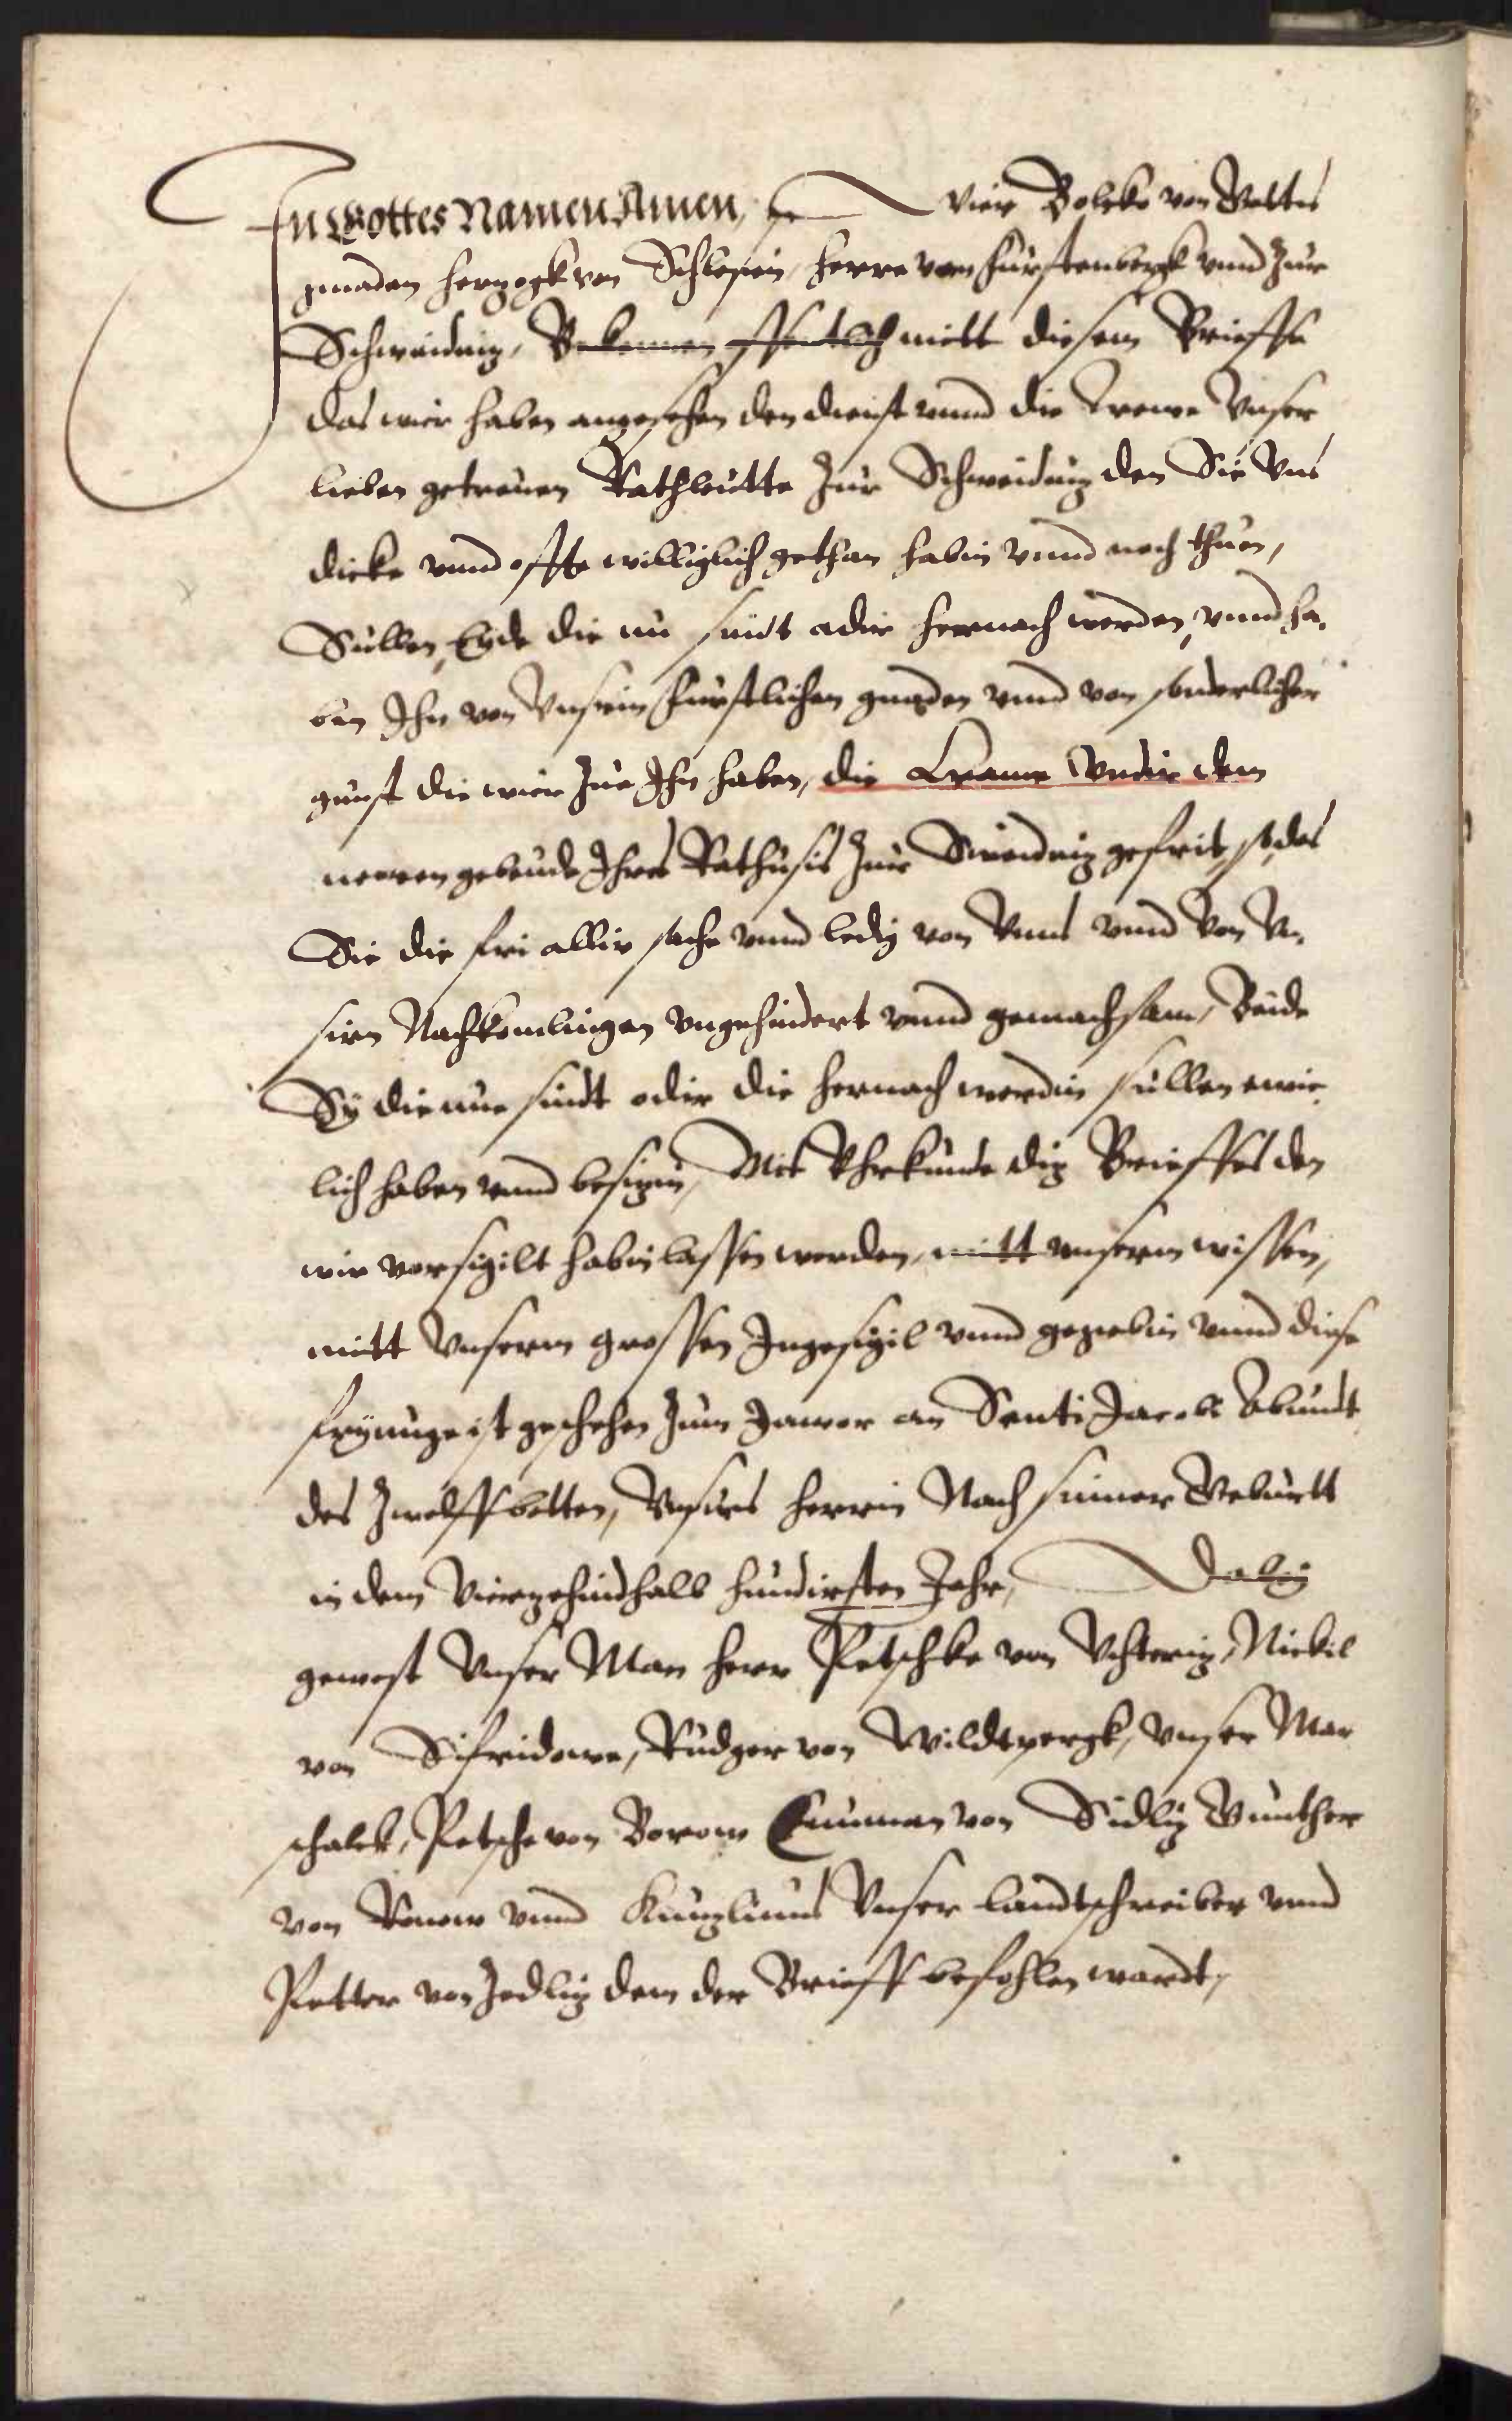 In Gottes Namen Amen, Wier Bolcko von Gottis
gnaden Herzogk von Schlesien, Herre vom Fürstenbergk vnnd Zur
Schweidniz, Bekennen offentlich mitt diesem Brieffe
das wier haben angesehen den dienst vnnd die trewe Vnser
lieben getreuen Rathleutte Zur Schweidniz den Sie Vns
dicke vnnd offte williglich gethan habin vnnd noch thuen,
Sullen, Eyde die nu sindt adir hernach werden, vnnd ha,
ben Ihn von Vnsirn Furstlichen gnaden vnnd von sonderlicher
gunst die wier Zue Ihn haben, die Crame Vndir dem
newen gebeude Ihres Rathusis Zur Sweidniz gefrit, so das
Sie die fri allir sache vnnd ledig von Vnns vnnd von Vn,
sirn Nachkomlingen vngehindert vnnd gemachsam, Beide
Sy die nue sindt odir die hernach werdin sullen ewic,
lich haben vnnd besizin, Mit Vhrkunde diz Brieffes den
wir vorsigilt habin lassen werden, mitt vnserm wissen,
mitt Vnserm grossen Ingesigil vnnd gegebin vnnd diese
fryunge ist geschehen Zum Jawor an Senti Jacobs Abundt
des Zwelffbotten, Vnsirs Herrin Nach seiner Geburtt
in dem Vierzehindhalb hundirsten Jahr, Dabiy
gewest Vnser Man Herr Petschke von Vchteriz, Nickil
von Sifridowe, Rudger von Wildtpergk, Vnser Mar
schalck, Petsche von Borow Cunman von Sidliz Gunther
von Ronow vnnd Kunzlinus Vnser Landtschreiber vnnd
Petter von Zedliz dem der Brieff befohlen wardt,